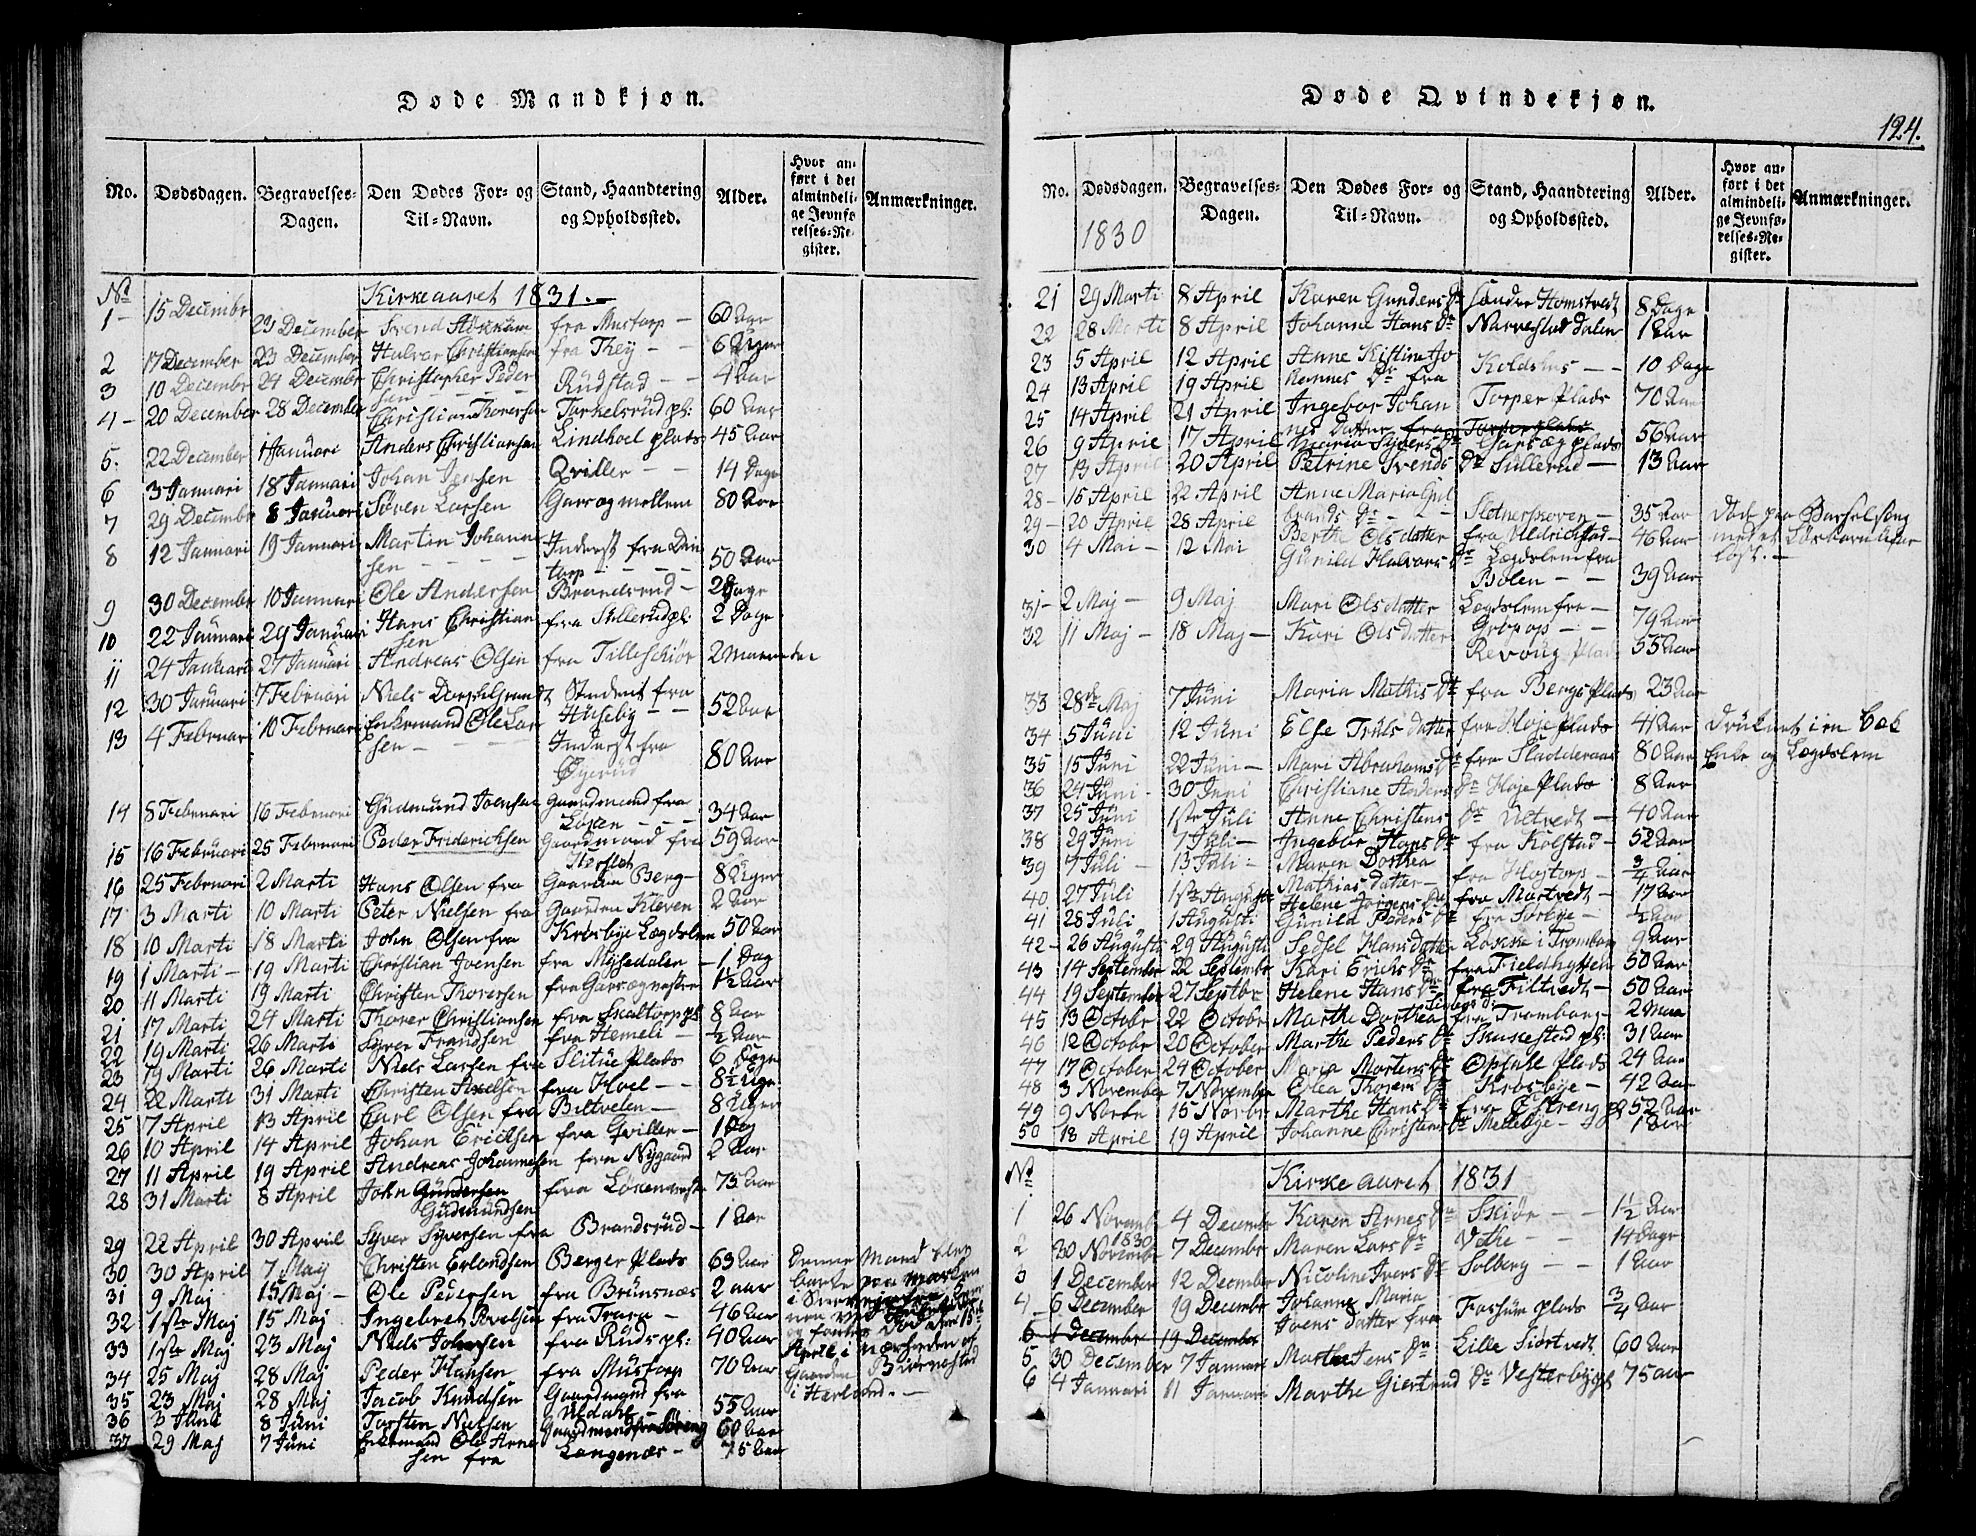 Døde Mandkjøn.
No. Dødsdagen. Begravelses-Dagen. Den Dødes For- og Til-Navn. Stand, Haandtering og Opholdssted. Alder. Hvor anført i det almindelige Jevnførelses-Register. Anmærkninger.
No Kirkeaaret 1831.
1 15 Decembr 23 December Svend fra Mustorp 60 Aar
2 17 December 23 December Halvor Christiansen fra They 6 Uger
3 10 Decembr 24 December Christopher Peder
sen Rudstad 4 Aar
4 20 December 28 December Christian Thorersen Torkelsrud pl: 60 Aar
5. 22 December 1 Januari Anders Christiansen Lindhoel plads 45 Aar
6 3 Januari 18 Januari Johan Jensen Qviller 14 Dage
7 29 Decembr 8 Januari Søren Larsen Garsøg mellem 80 Aar
8 12 Januari 19 Januari Martin Johanne
sen Inderst fra
torp 50 Aar
9 30 December 10 Januari Ole Andersen Brandsrud Dage
10 22 Januari 29 Januari Hans Christian
sen fra Sullerud pl: 2 Dage
11 24 Januari 27 Januari Andreas Olsen fra Tilleskiör 2 Maaneder
12 30 Januari 7 Februari Niels Student fra
Huseby 52 Aar
13 4 Februar 10 Februari Enkemand Ole Lar
sen Inderst fra
Øgerud 80 Aar
14 8 Februari 16 Februari Gudmund Joensen Gaardmand fra
Løken 34 Aar
15 16 Februari 25 Februari Peder Friderichsen Gaardmand fra
59 Aar
16 25 Februari 2 Marti Hans Olsen fra Gaarden Berg 8 Uger
17 3 Marti 10 Marti Peter Nielsen fra Gaarden Kleven 2 Aar
18 10 Marti 18 Marti John Olsen fra Krosbye Lægdslem 50 Aar
19 1 Marti 19 Marti Christian Joensen fra Mysedalen 1 Dag
20 11 Marti 19 Marti Christen Thorersen fra Garsøgnestre 1½ Aar
21 17 Marti 24 Marti Thorer Christiansen fra Skaltorp pl 8 Aar
22 19 Marti 26 Marti Syver Frandsen fra Hemeli ½ Aar
23 19 Marti 26 Marti Niels Larsen fra Slitue Plads 6 Dage
24 22 Marti 31 Marti Christen Axelsen fra Hoel 8½ Uge
25 7 April 13 April Carl Olsen fra Biltvelen 8 Uger
26 10 April 14 April Johan Ericksen fra Qviller 1 Dag
27 11 April 19 April Andreas Johannesen fra Nygaard 2 Aar
28 31 Marti 8 April John Gundersen
Gudmundsen fra 75 Aar
29 22 April 30 April Syver Syversen fra Brandsrud 1 Aar
30 30 April 7 Maij Christen Erlandsen Berger Plads 63 Aar
31 9 Maj 15 Maj Ole Pedersen fra Brunsnæs 2 aar
32 1ste Maj 15 Maj Ingebret Povelsen fra Trara 46 Aar
33 1ste Maj 23 Maj Niels Johnsen fra Ruds pl: 40 Aar
34 25 Maj 28 Maj Peder Hansen fra Mustorp 70 Aar
35 23 Maj 28 Maj Jacob Knudsen Gaardmand fra
Uldahl 55 Aar
36 3 Juni 8 Juni Torsten Nielsen Gaardmand fra 60 Aar
37 29 Maj 7 Juni Enkemand Ole Arne
sen fra Langenæs 75 Aar
Denne Mand blev
April i nærheden af
Gaarden
i
Døde Qvindekjøn.
124.
No. Dødsdagen. Begravelses-Dagen. Den Dødes For- og Til-Navn. Stand, Haandtering og Opholdssted. Alder. Hvor anført i det almindelige Jevnførelses-Register. Anmærkninger.
1830
21 29 Marti 8 April Karen Gunders Dr søndre Homstvedt 8 Dage
22 28 Marti 8 April Johanne Hans Dr Narvestad Dalen 1 Aar
23 5 April 12 April Anne Kistine Jo
hannes Dr fra Koldshus 10 Dage
24 13 April 19 April Ingebor Johan
nes Datter Torper Plads 70 Aar
25 14 April 21 April
26 9 April 17 April Maria Syvers Dr Garsøg plads 56 Aar
27 13 April 20 April Petrine Svends Dr Sullerud 13 Aar
28 15 April 22 April Anne Maria Gul
brands Dr Slotnerskoven 35 Aar Død paa Barselseng
29 20 April 28 April Berthe Olsdatter fra 46 Aar
30 4 Mai 12 Mai Gunild Halvors Dr Lægdslem fra
Bølen 39 Aar
31 2 Maj 9 Maj Mari Olsdatter Lægdslem fra
79 Aar
32 11 Maj 18 Maj Kari Olsdatter Plads 55 Aar
33 28de Maj 7 Juni Maria Mathis Dr fra Bergs Plads 23 Aar
34 5 Juni 12 Juni Else Truls datter fra Høje Plads 41 Aar Druknet i en Bæk
35 15 Juni 22 Juni Mari Abrahams Dr fra Sladderaas 80 Aar Enke og Lægdslem
36 24 Juni 30 Juni Christiane Anders Dr Høje Plads 8 Aar
37 25 Juni 1ste Juli Anne Christens Dr Utvedt 40 Aar
38 29 Juni 7 Juli Ingebor Hans Dr fra Kolstad 52 Aar
39 7 Juli 13 Juli Maren Dorthea
Mathias datter fra Hojtorp ¾ Aar
40 27 Juli 1ste Augusti Helene Jørgens Dr fra Mortvedt 17 Aar
41 28 Juli 1 Augusti Gunild Peders Dr fra Sørbye ½ Aar
42 26 Augusti 29 Augusti Sedsel Hans datter Løkke i Tromborg 9 Aar
43 14 September 22 Septembr Kari Erichs Dr fra Fieldhytten 50 Aar
44 19 September 27 Septbr Helene Hans Dr fra Filtvedt 50 Aar
45 13 Octobr 22 Octobr Marthe Dorthea fra Tromborg 2 Maa
46 12 Octobr 20 October Marthe Peders Dr Skukestad pl: 31 Aar
47 17 October 24 October Maria Mortens Dr Opsahl Plads 24 Aar
48 3 November 7 November Olea Thorers Dr Krosbye 42 Aar
49 9 Novbr 15 Novbr Marthe Hans Dr fra Østreng pl 52 Aar
50 18 April 19 April Johanne Christens Dr Mellebye 1 Aar
No Kirkeaaret 1831
1 26 Novembr 4 Decembr Karen Arnes Dr Skiør 1½ Aar
1830
2 30 Novembr 7 Decembr Maren Lars Dr Vethe 14 Dage
3 1 December 12 December Nicoline Ivers Dr Solberg 1 Aar
4 6 December 19 Decembr Johanne Maria
Joens datter fra Fossum plads ¾ Aar
5 1 Decembr 19 Decembr
5 30 December 7 Januari Marthe Jens Dr Lille Siørtvedt 60 Aar
6 4 Januari 11 Januari Marthe Giertrud Dr Vesterbyget 75 aar